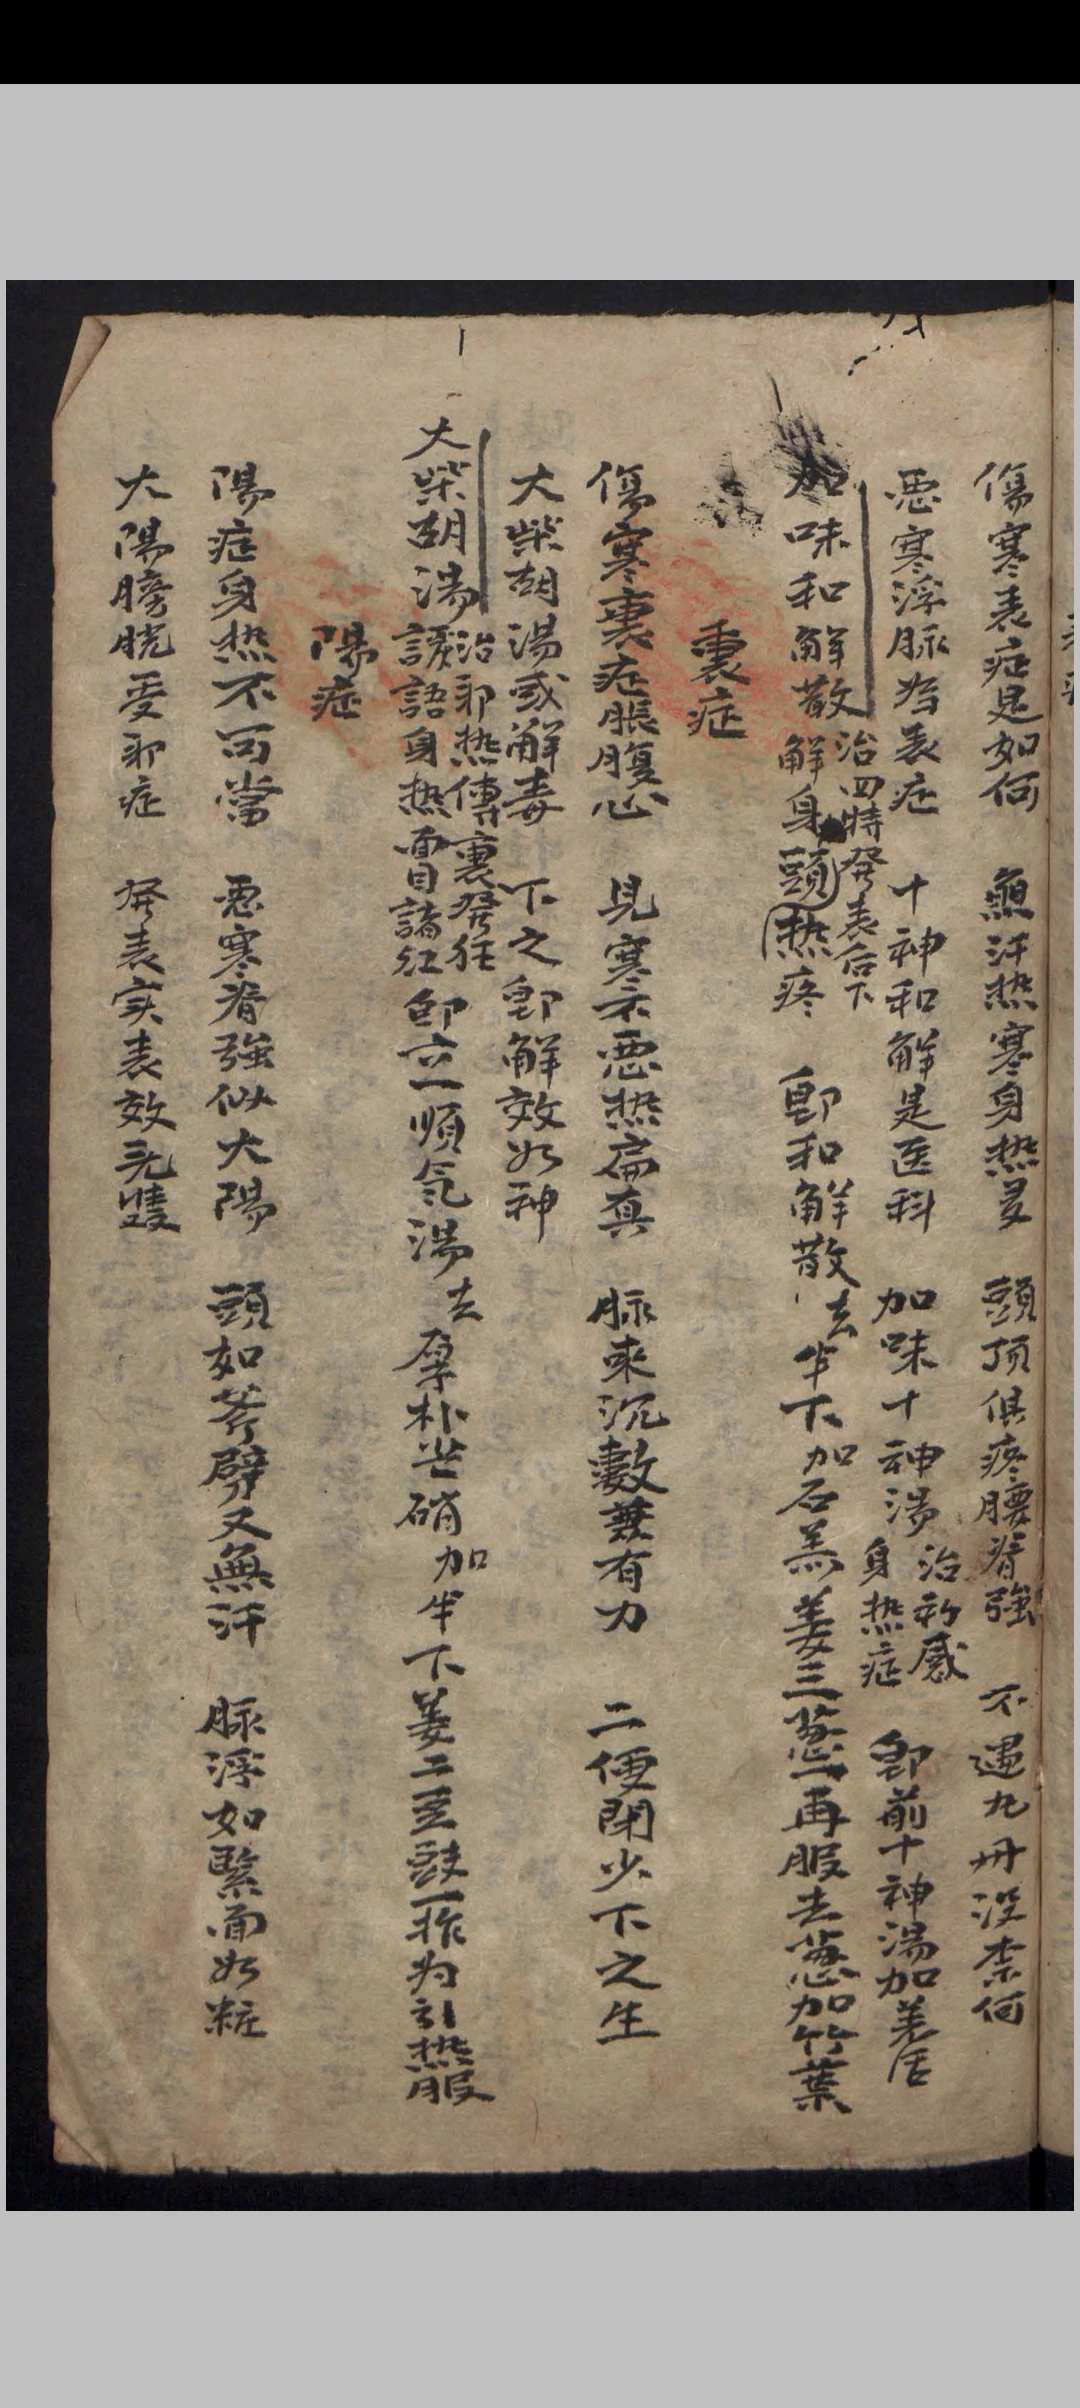 傷寒表症是如何　無汗热寒身热多　頭頂俱疼腰脊強　不遇九丹没柰何
恶寒浮脉為表症　十神和解是医科　加味十神湯
治初感
身热症
即前十神湯加羌活
加味和解散
治四時發表后下
解身頭热疼
即和解散去半下加石羔姜三葱一再服去葱加竹葉
裏症
傷寒裏症脹腹心　見寒不恶热扁真　脉来沉數兼有力　二便閉少下之生
大柴胡湯或解毒　下之即解效如神
大柴胡湯
治邪热傳裏發狂
譫語身热面目諸紅
即六一順氣湯去厚朴芒硝加半下姜二豆豉一撮为引热服
陽症
陽症身热不可當　恶寒脊強似大陽　頭如斧劈又無汗　脉浮如緊面如粧
大陽膀胱受邪症　發表实表效无雙